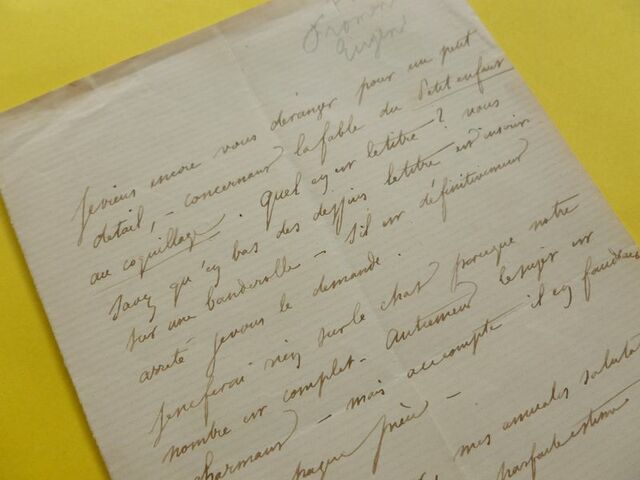 Eugène
Je viens encore vous déranger pour un petit
detail, - concernant la fable du Petit enfant
au coquillage. Quel en est le titre? vous
savez qu'en bas des dessins le titre est inscrit
sur une banderolle - S'il est définitivement
arrêté je vous le demande.
Je ne ferai rien sur le chat parceque notre
nombre est complet. Autrement le sujet est
charmant - mais au compte il en faudrait
chaque pièce -
mes amicales salutat
parfaite estime